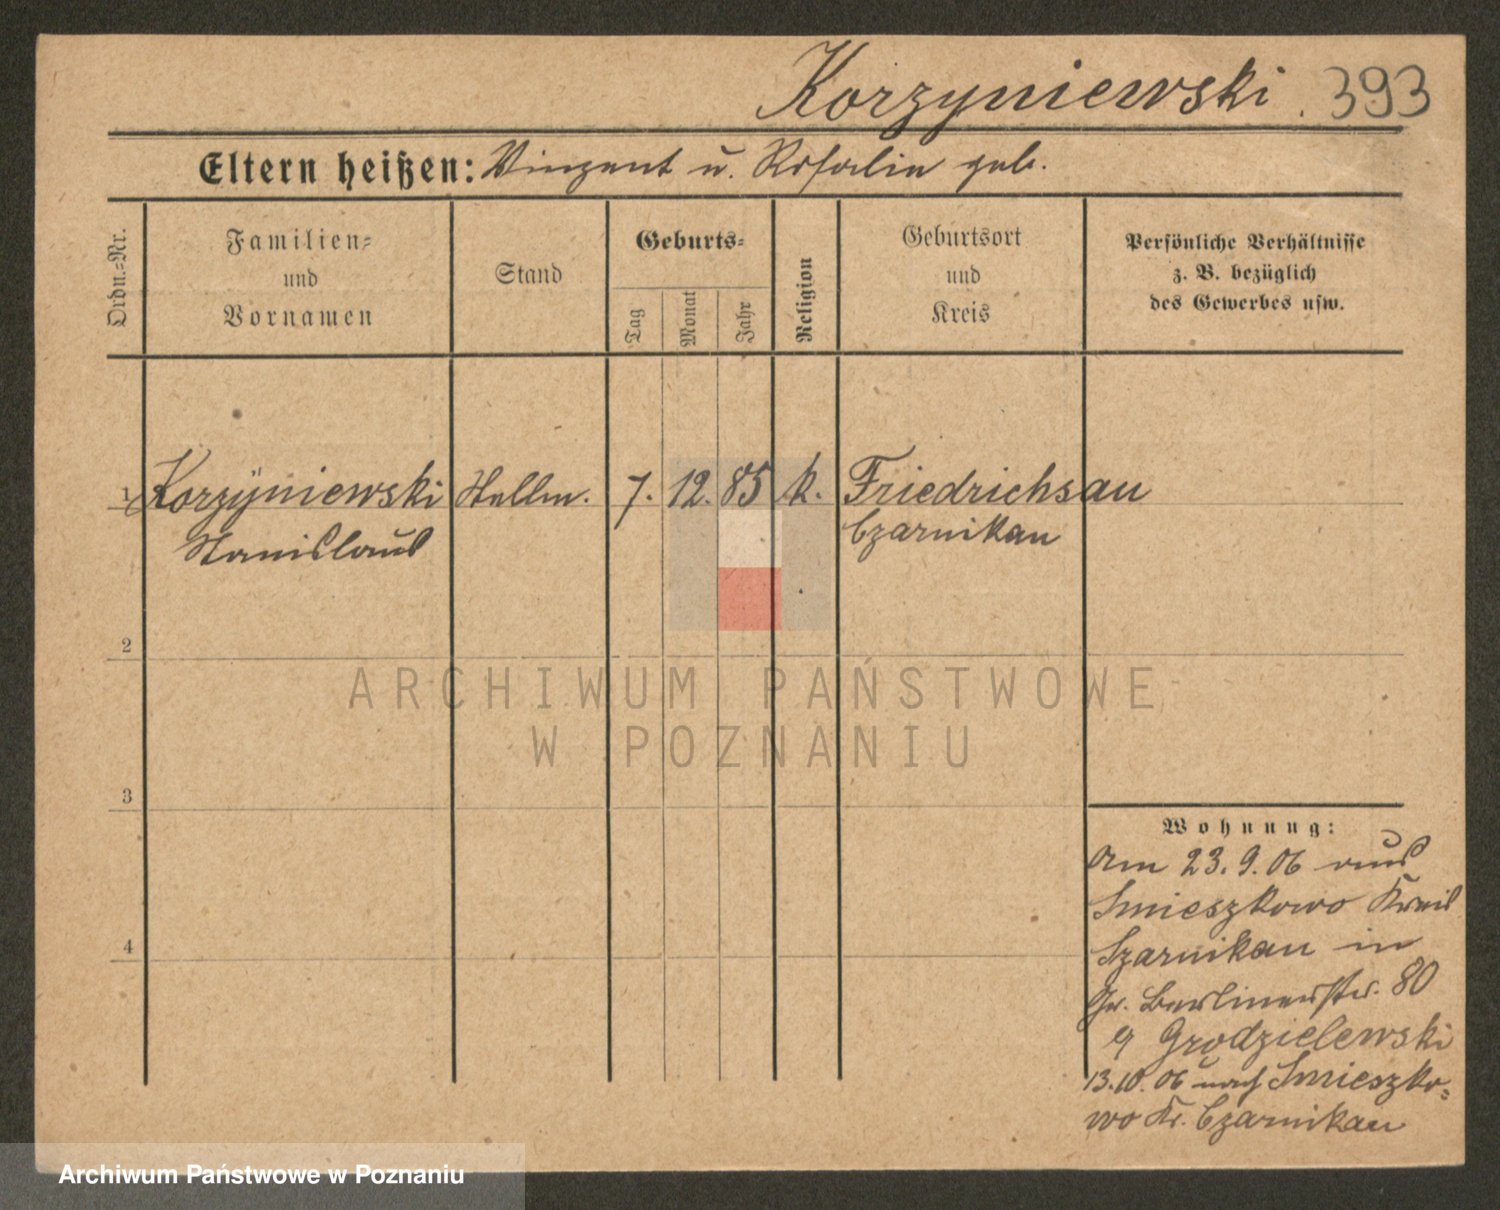 Korzyniewski 393
Eltern heißen: Vinzent u. Rosalie geb.
Ordn.-Nr.
Familien-
und
Vornamen
Stand
Geburts-
Tag
Monat
Jahr
Religion
Geburtsort
und
Kreis
Persönliche Verhältnisse
z. B. bezüglich
des Gewerbes usw.
1 Korzyniewski Stellm. 7. 12. 85 k. Friedrichsau
Stanislaus Czarnikau
2
3
4
Wohnung:
Am 23.9.06 aus
Smieszkowo Kreis
Czarnikau in
Gr. Berlinerstr. 80
Grodzielewski
13.10.06 nach Smieszko-
wo Kr. Czarnikau
ARCHIWUM PAŃSTWOWE
W POZNANIU
Archiwum Państwowe w Poznaniu